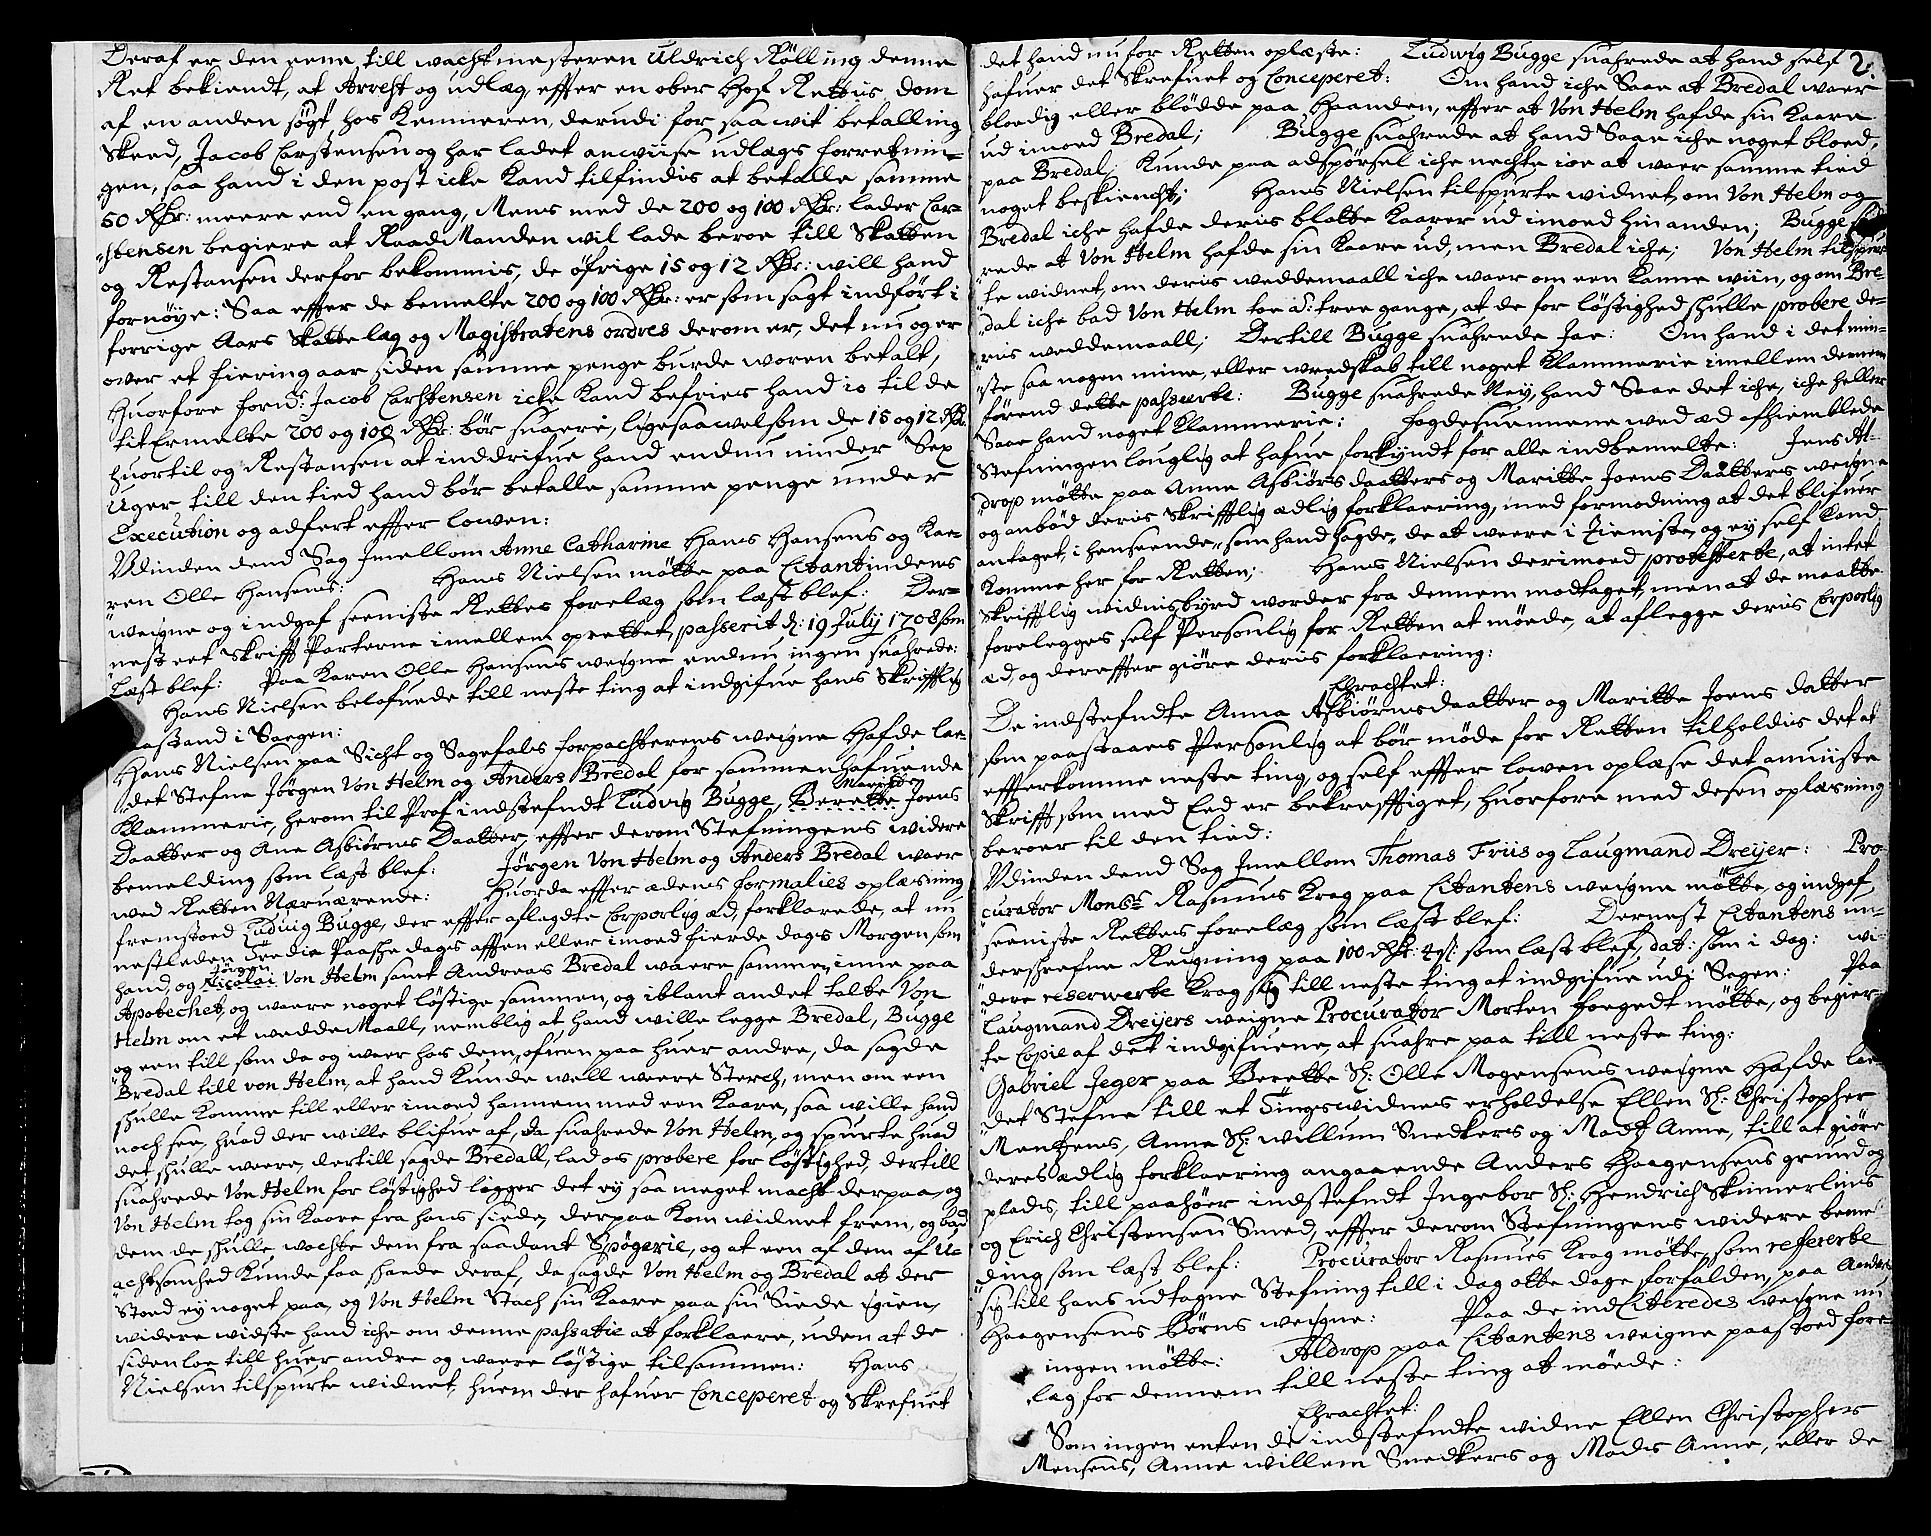 Deraf er den eene till wachtmesteren Uldrich Rölling denne
Ret bekiendt, at Arrest og udlæg effter en ober Hof Rettis dom
af en anden søgt hos Kemneren, derudi for saa wit betalling
Skeed, Jacob Carstensen og har ladet anwiise udlægs forretnin-
gen, saa hand i den post icke kand tilfindis at betalle samme
50 Rdr: meere end en gang, Mens med de 200 og 100 Rdr: lader Car-
stensen begiere at RaadManden wil lade beroe till Skatten
og Restansen derfor bekommis, de øfrige 15 og 12 Rdr: will hand
fornøye: Saa effter de bemelte 200 og 100 Rdr: er som sagt indført i
forrige Aars Skattelæg og Magistratens ordres derom er, det nu og er
over et fiering aar siden samme penge burde woren betalt,
Huorfore forn: Jacob Carstensen icke kand befries hand io til de
titermelte 200 og 100 Rdr: bør suaere, ligesaawelsom de 15 og 12 Rdr:
huortil og Restansen at inddrifue hand endnu niuder Sex
Uger till den tied hand bør betalle samme penge under
Execution og adfert effter lowen:
Udinden dend Sag Imellom Anne Catharine Hans Hansens og Ka-
ren Olle Hansens: Hans Nielsen mötte paa Citantindens
weigne og indgaf seeniste Rettes forelæg som læst blef: Der-
nest eet Skrifft Parterne imellem oprettet, passerit d: 19 July 1708 som
læst blef: Paa Karen Olle Hansens weigne endnu ingen suahrede:
Hans Nielsen belofuede till neste ting at indgifue hans Skrifftlig
Paastand i Sagen:
Hans Nielsen paa Sicht og Sagefals forpachterens weigne Hafde la-
det Stefne Jørgen Von Helm og Anders Bredal for sammenhafuende
Klammerie, herom til Prof indstefndt Ludvig Bugge, Berette Maritte Joens
Daatter og Ane Asbiørns Daatter, effter derom Stefningens widere
bemelding som læst blef: Jørgen Von Helm og Anders Bredal waer
wed Retten Nærwærende: Huorda effter ædens formalies oplæsning
fremstoed Ludvig Bugge, der effter aflagdte Corporlig æd, forklarede, at nu
nestleden Tredie Paaske dags afften eller imoed fierde dags Morgen som
hand, og Nicolai Jørgen Von Helm samt Andreas Bredal waere sammen inne paa
Apothechet, og waere noget løstige sammen, og iblant andet talte Von
Helm om et wedde Maall, nemblig at hand wille legge Bredal, Bugge
og een till som da og waer hos dem, ofuen paa huer andre, da sagde
Bredal till von Helm, at hand kunde well weere Sterch, men om een
skulle komme till eller imoed hannem med een Kaare, saa wille hand
noch see, huad der wille blifue af, da suahrede Von Helm, og spurte huad
det skulle weere, dertill sagde Bredall, lad os probere for løstighed, dertill
suahrede Von Helm for løstighed ligger det ey saa meget macht derpaa, og
Von Helm tog sin Kaare fra hans siede, derpaa kom widnet frem, og bad
dem de skulle wochte dem fra saadant Spøgerie, og at een af dem af U-
achtsomhed kunde faa skade deraf, da sagde Von Helm og Bredal at der
Stoed ey noget paa, og Von Helm Stach sin Kaare paa sin Siede igien,
widere widste hand iche om denne passatie at forklaere, uden at de
siden loe till huer andre og waere løstige tilsammen: Hans
Nielsen tilspurte widnet, huem der hafuer Conceperet og Skrefuet
2.
det hand nu for Retten oplæste: Ludwig Bugge suahrede at hand self
hafuer det Skrefuet og Conceperet: Om hand iche Saae at Bredal waer
bloedig eller blødde paa Haanden, effter at Von Helm hafde sin Kaare
ud imoed Bredal; Bugge suahrede at hand Saae iche noget bloed,
paa Bredal; Kunde paa adspørsel iche nechte ioe at waer samme tied
noget beskienckt; Hans Nielsen tilspurte widnet, om Von Helm og
Bredal iche hafde deris blatte Kaarer ud imoed hin anden; Bugge sua-
rede at Von Helm hafde sin Kaare ud, men Bredal iche; Von Helm tilspur-
te widnet, om deris weddemaall iche waer om een Kanne wiin, og om Bre-
dal iche bad Von Helm toe à: tree gange, at de for løstighed skulle probere de-
ris weddemaall; Dertill Bugge suahrede Jae: Om hand i det min-
ste saa nogen mine, eller wredskab till noget Klammerie imellem dennem
førend dette passerte: Bugge suahrede Ney, hand Saae det iche, iche heller
Saae hand noget Klammerie: Fogdesuennene wed æd afhiemblede
Stefningen louglig at hafue forkyndt for alle indbemelte: Jens Al-
drop møtte paa Anne Asbiørs daatters og Maritte Joens Daatters weigne
og anbød deris Skrifftlig ædlig forklaering, med formodning at det blifuer
antaget, i henseende, som hand sagde, de at weere i tienniste, og ey self kand
komme her for Retten; Hans Nielsen derimoed protesterte, at intet
Skrifftlig widnisbyrd worder fra dennem modtaget, men at de maatte
forelegges self Personlig for Retten at møede, at aflegge deris Corporlig
æd, og dereffter giøre deris forklaering:
Eragtet:
De indstefndte Anna Asbiørnsdaatter og Maritte Joens datter
som paastaaes Personlig at bør møde for Retten tilholdis det at
effterkomme neste ting, og self effter lowen oplæse det anwiiste
Skrifft som med Eed er bekrefftiget, huorfore med desen oplæsning
beroer til den tied:
Udinden dend Sag Imellom Thomas Friis og Laugmand Dreyer: Pro-
curator Mons:r Rasmus Krag paa Citantens weigne møtte, og indgaf,
seeniste Rettes forelæg som læst blef: Dernest Citantens un-
derskrefne Reigning paa 100 Rdr: 4 s: som læst blef, dat: som i dag: wi-
dere reserwerte Krag sig till neste ting at indgifue udi Sagen: Paa
Laugmand Dreyers weigne Procurator Morten Foegedt møtte, og begier-
te Copie af det indgifuene, at suahre paa till neste ting:
Gabriel Jeger paa Berette Sl: Olle Mogensens weigne Hafde la-
det Stefne till et Tingswidnes erholdelse Ellen Sl: Christopher
Mentzens, Anne Sl: willum Snedkers og Mads Anne, till at giøre
deres ædlig forklaering angaaende Anders Haagensens grund og
plads, till paahøer indstefndt Ingebor Sl: Hendrich Skimerlins
og Erich Christensen Smed, effter derom Stefningens widere beme-
ding som læst blef: Procurator Rasmus Krag møtte, som refererte
sig till hans udtagne Stefning till i dag otte dage forfalden, paa Anders
Haagensens børns weigne: Paa de indCiteredes weigne nu
ingen møtte: Aldrop paa Citantens weigne paastoed fore-
læg for dennem till neste ting at møede:
Eragtet:
Som ingen enten de indstefndte widne Ellen Christophers
Mensens, Anne willem Snedkers og Mads Anne, eller de